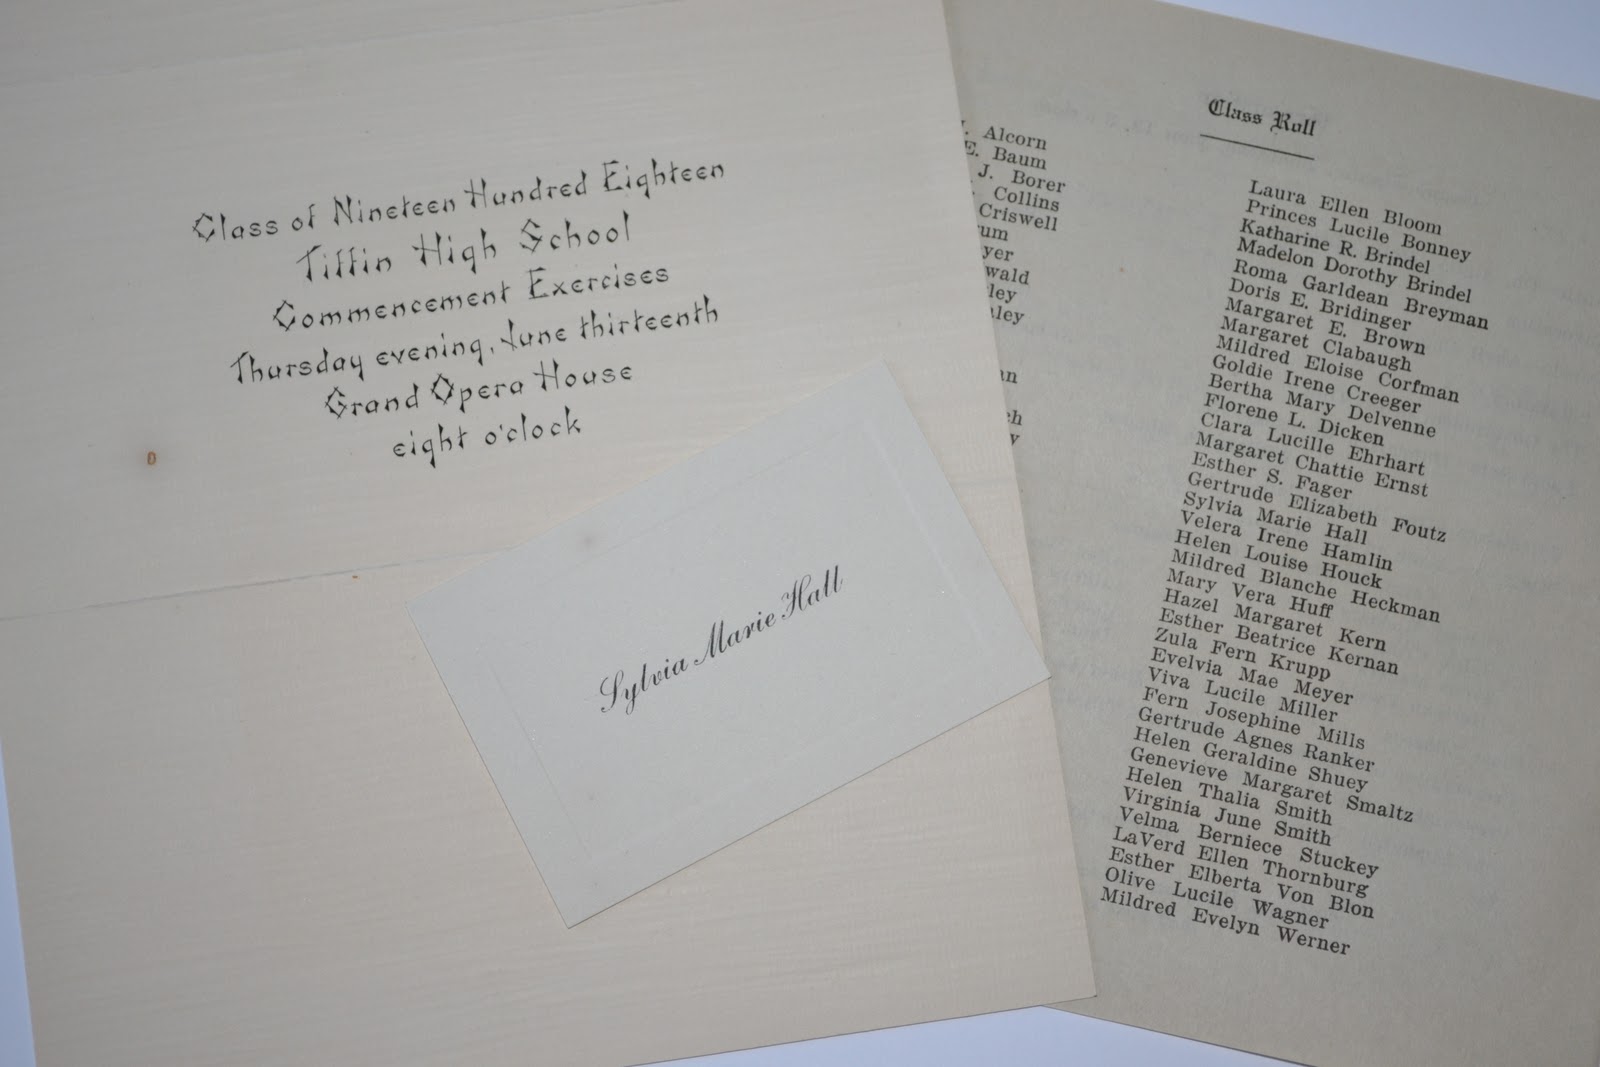 Class of Nineteen Hundred Eighteen
Tiffin High School
Commencement Exercises
Thursday evening, June thirteenth
Grand Opera House
eight o'clock
Sylvia Marie Hall
Class Roll
Alcorn
E. Baum
J. Borer
Collins
Criswell
Laura Ellen Bloom
Princes Lucile Bonney
Katharine R. Brindel
Madelon Dorothy Brindel
Roma Garldean Breyman
Doris E. Bridinger
Margaret E. Brown
Margaret Clabaugh
Mildred Eloise Corfman
Goldie Irene Creeger
Bertha Mary Delvenne
Florene L. Dicken
Clara Lucille Ehrhart
Margaret Chattie Ernst
Esther S. Fager
Gertrude Elizabeth Foutz
Sylvia Marie Hall
Velera Irene Hamlin
Helen Louise Houck
Mildred Blanche Heckman
Mary Vera Huff
Hazel Margaret Kern
Esther Beatrice Kernan
Zula Fern Krupp
Evelvia Mae Meyer
Viva Lucile Miller
Fern Josephine Mills
Gertrude Agnes Ranker
Helen Geraldine Shuey
Genevieve Margaret Smaltz
Helen Thalia Smith
Virginia June Smith
Velma Berniece Stuckey
LaVerd Ellen Thornburg
Esther Elberta Von Blon
Olive Lucile Wagner
Mildred Evelyn Werner